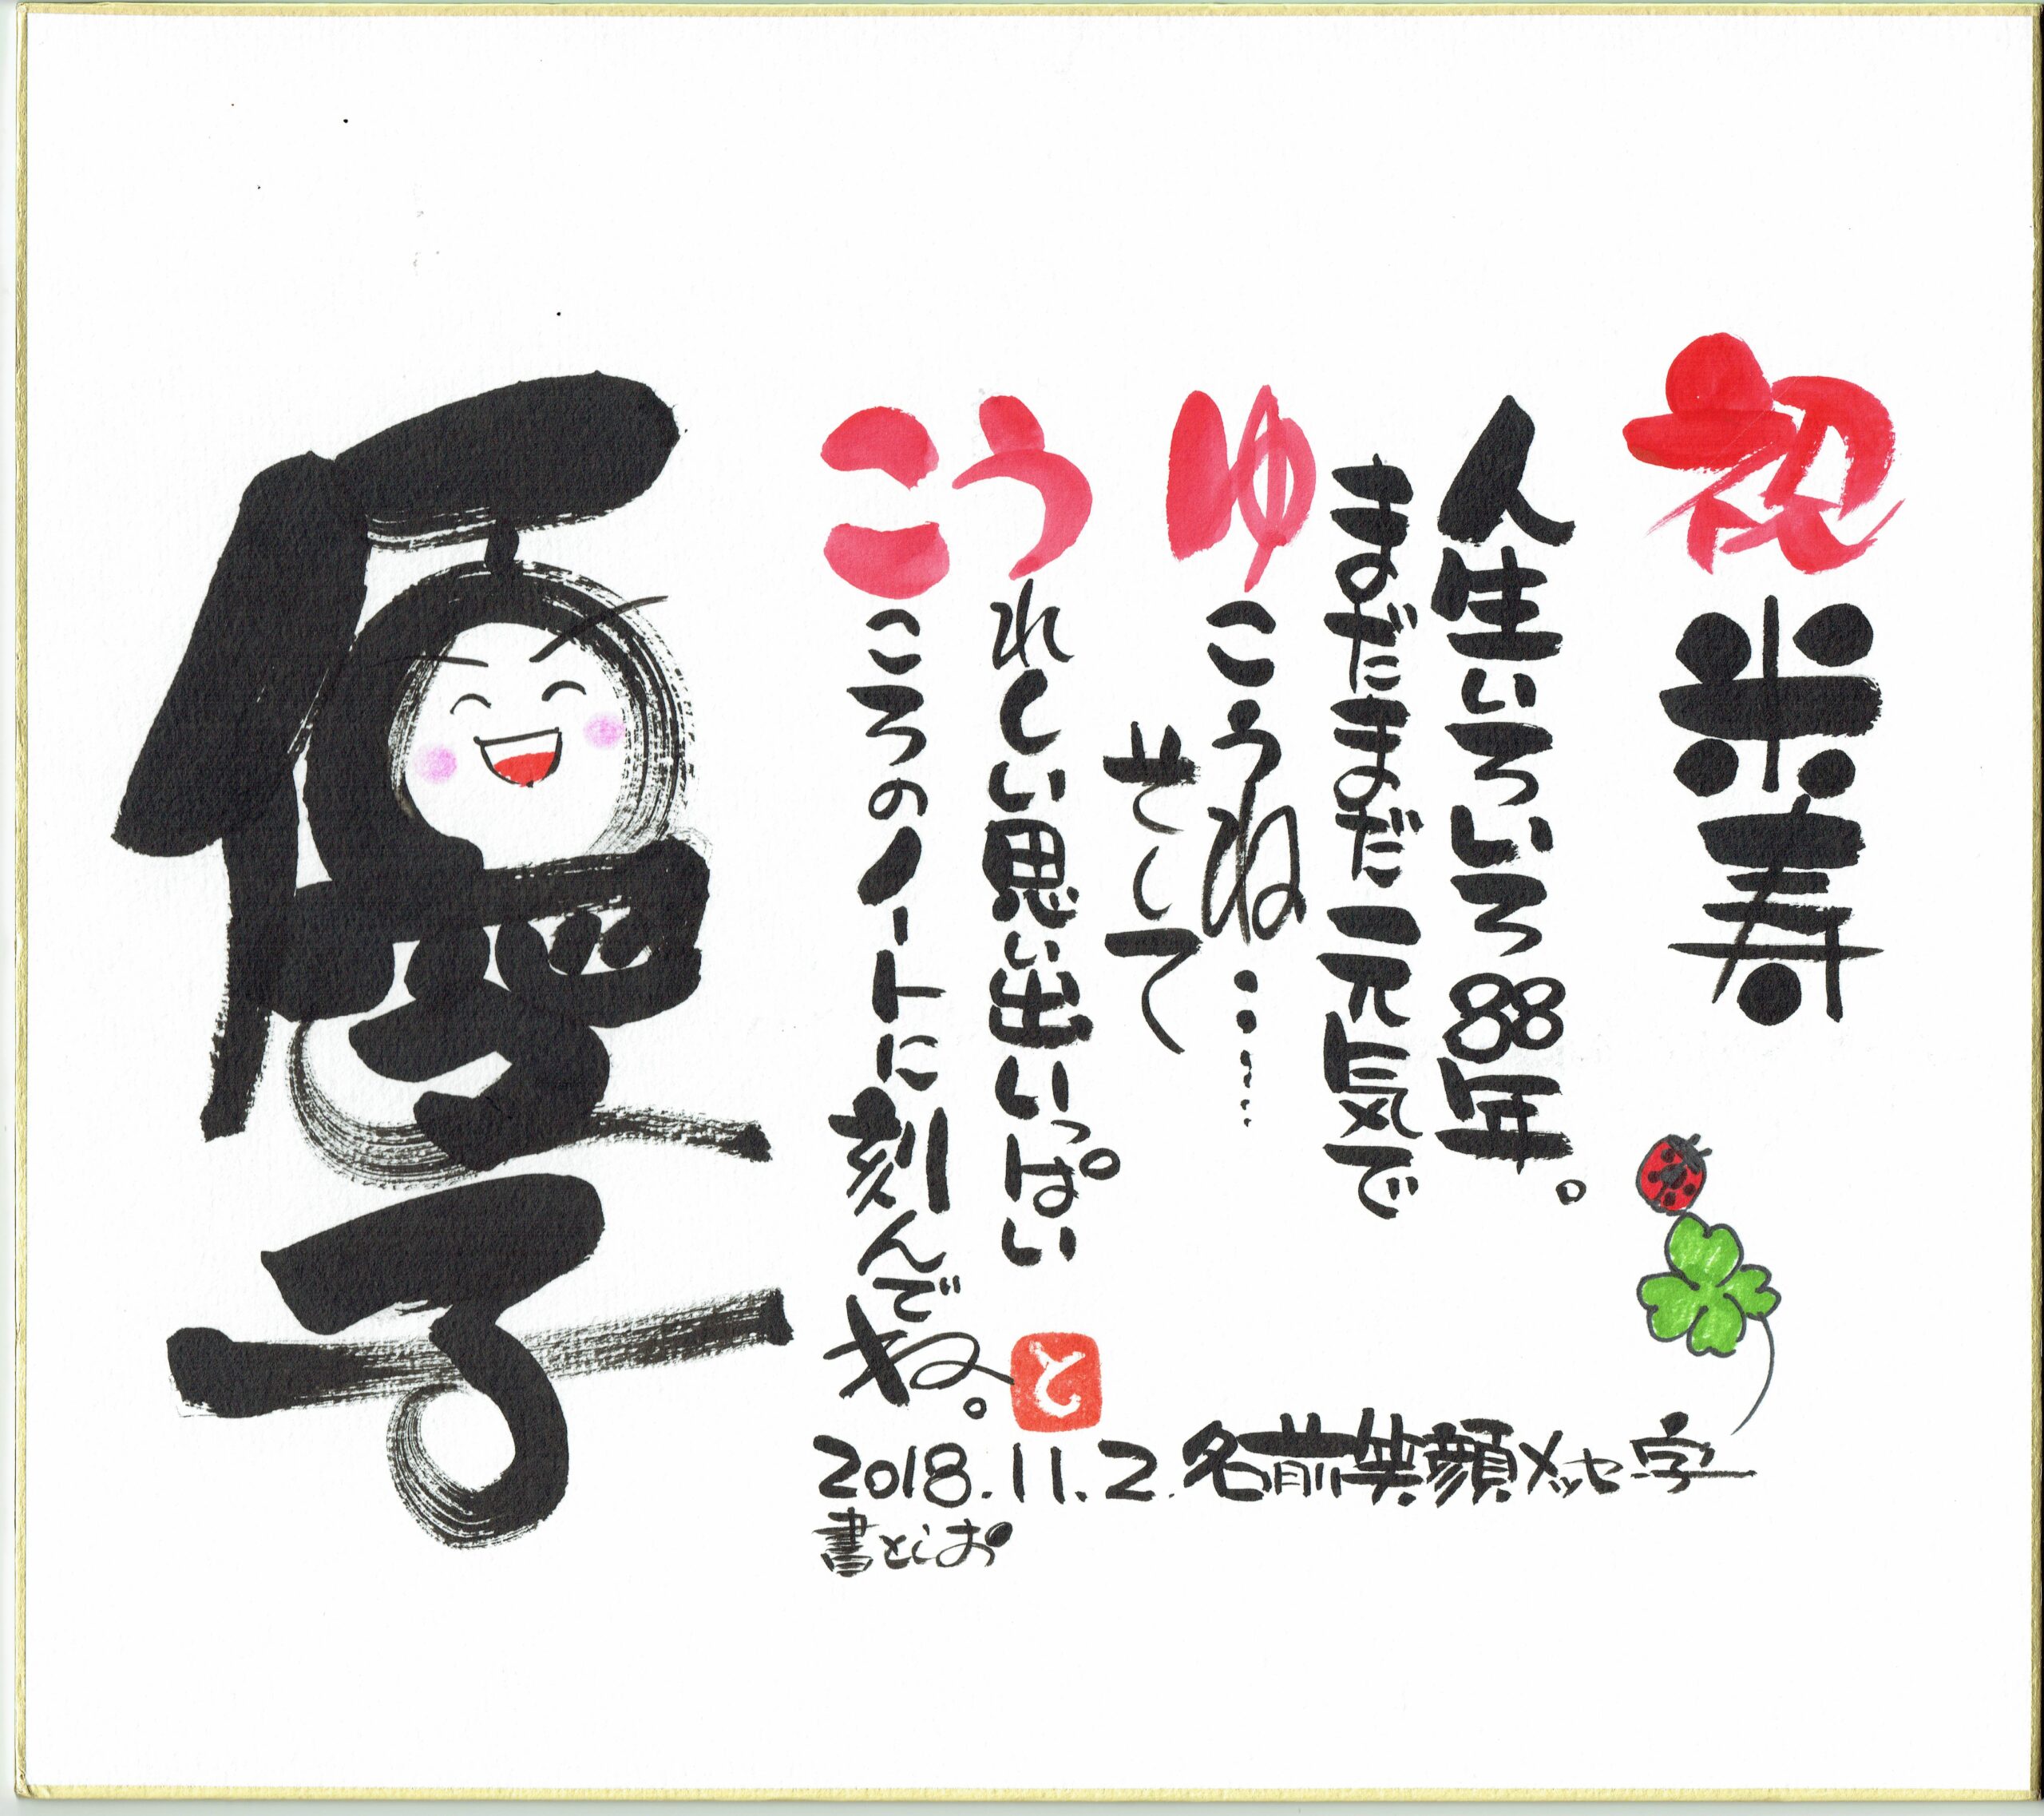 祝米寿
人生いろいろ88年。
まだまだ元気で
ゆこうね……
そして
うれしい思い出いっぱい
こころのノートに刻んでね。
優子
と
2018.11.2.名前笑顔メッセ字
書としお